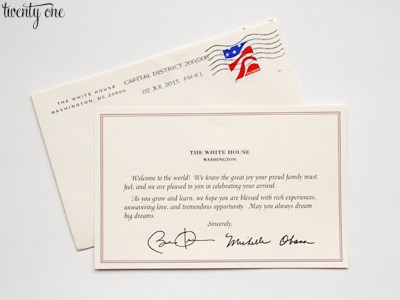 twenty one
THE WHITE HOUSE
WASHINGTON, DC 20500
CAPITAL DISTRICT 200/208
02 JUL 2015 PM 4 L
THE WHITE HOUSE
WASHINGTON
Welcome to the world! We know the great joy your proud family must
feel, and we are pleased to join in celebrating your arrival.
As you grow and learn, we hope you are blessed with rich experiences,
unwavering love, and tremendous opportunity. May you always dream
big dreams.
Sincerely,
Michelle Obama